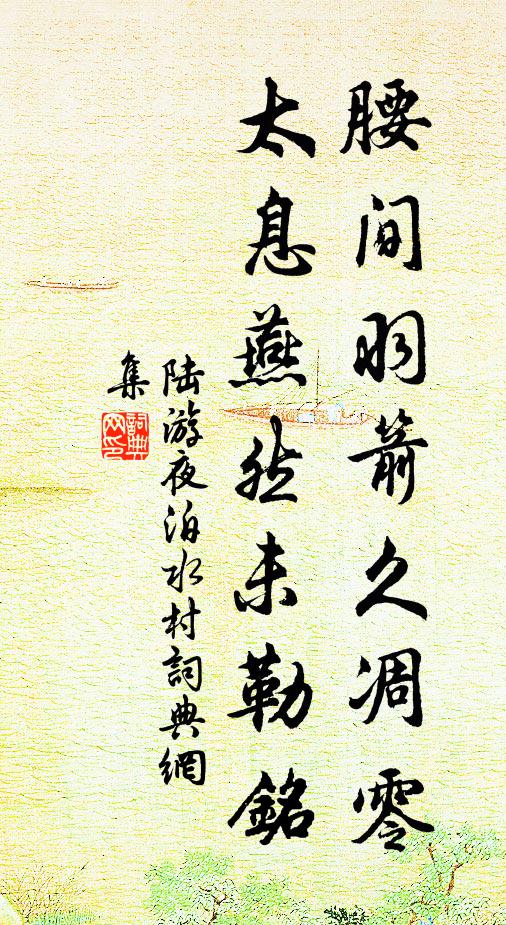 腰间羽箭久凋零
太息燕然未勒銘
陆游夜泊水村詞典網
集
詞典网印